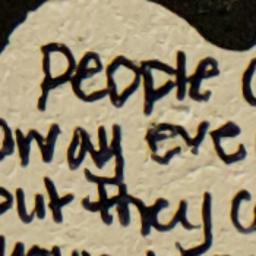 People
away eve
but they